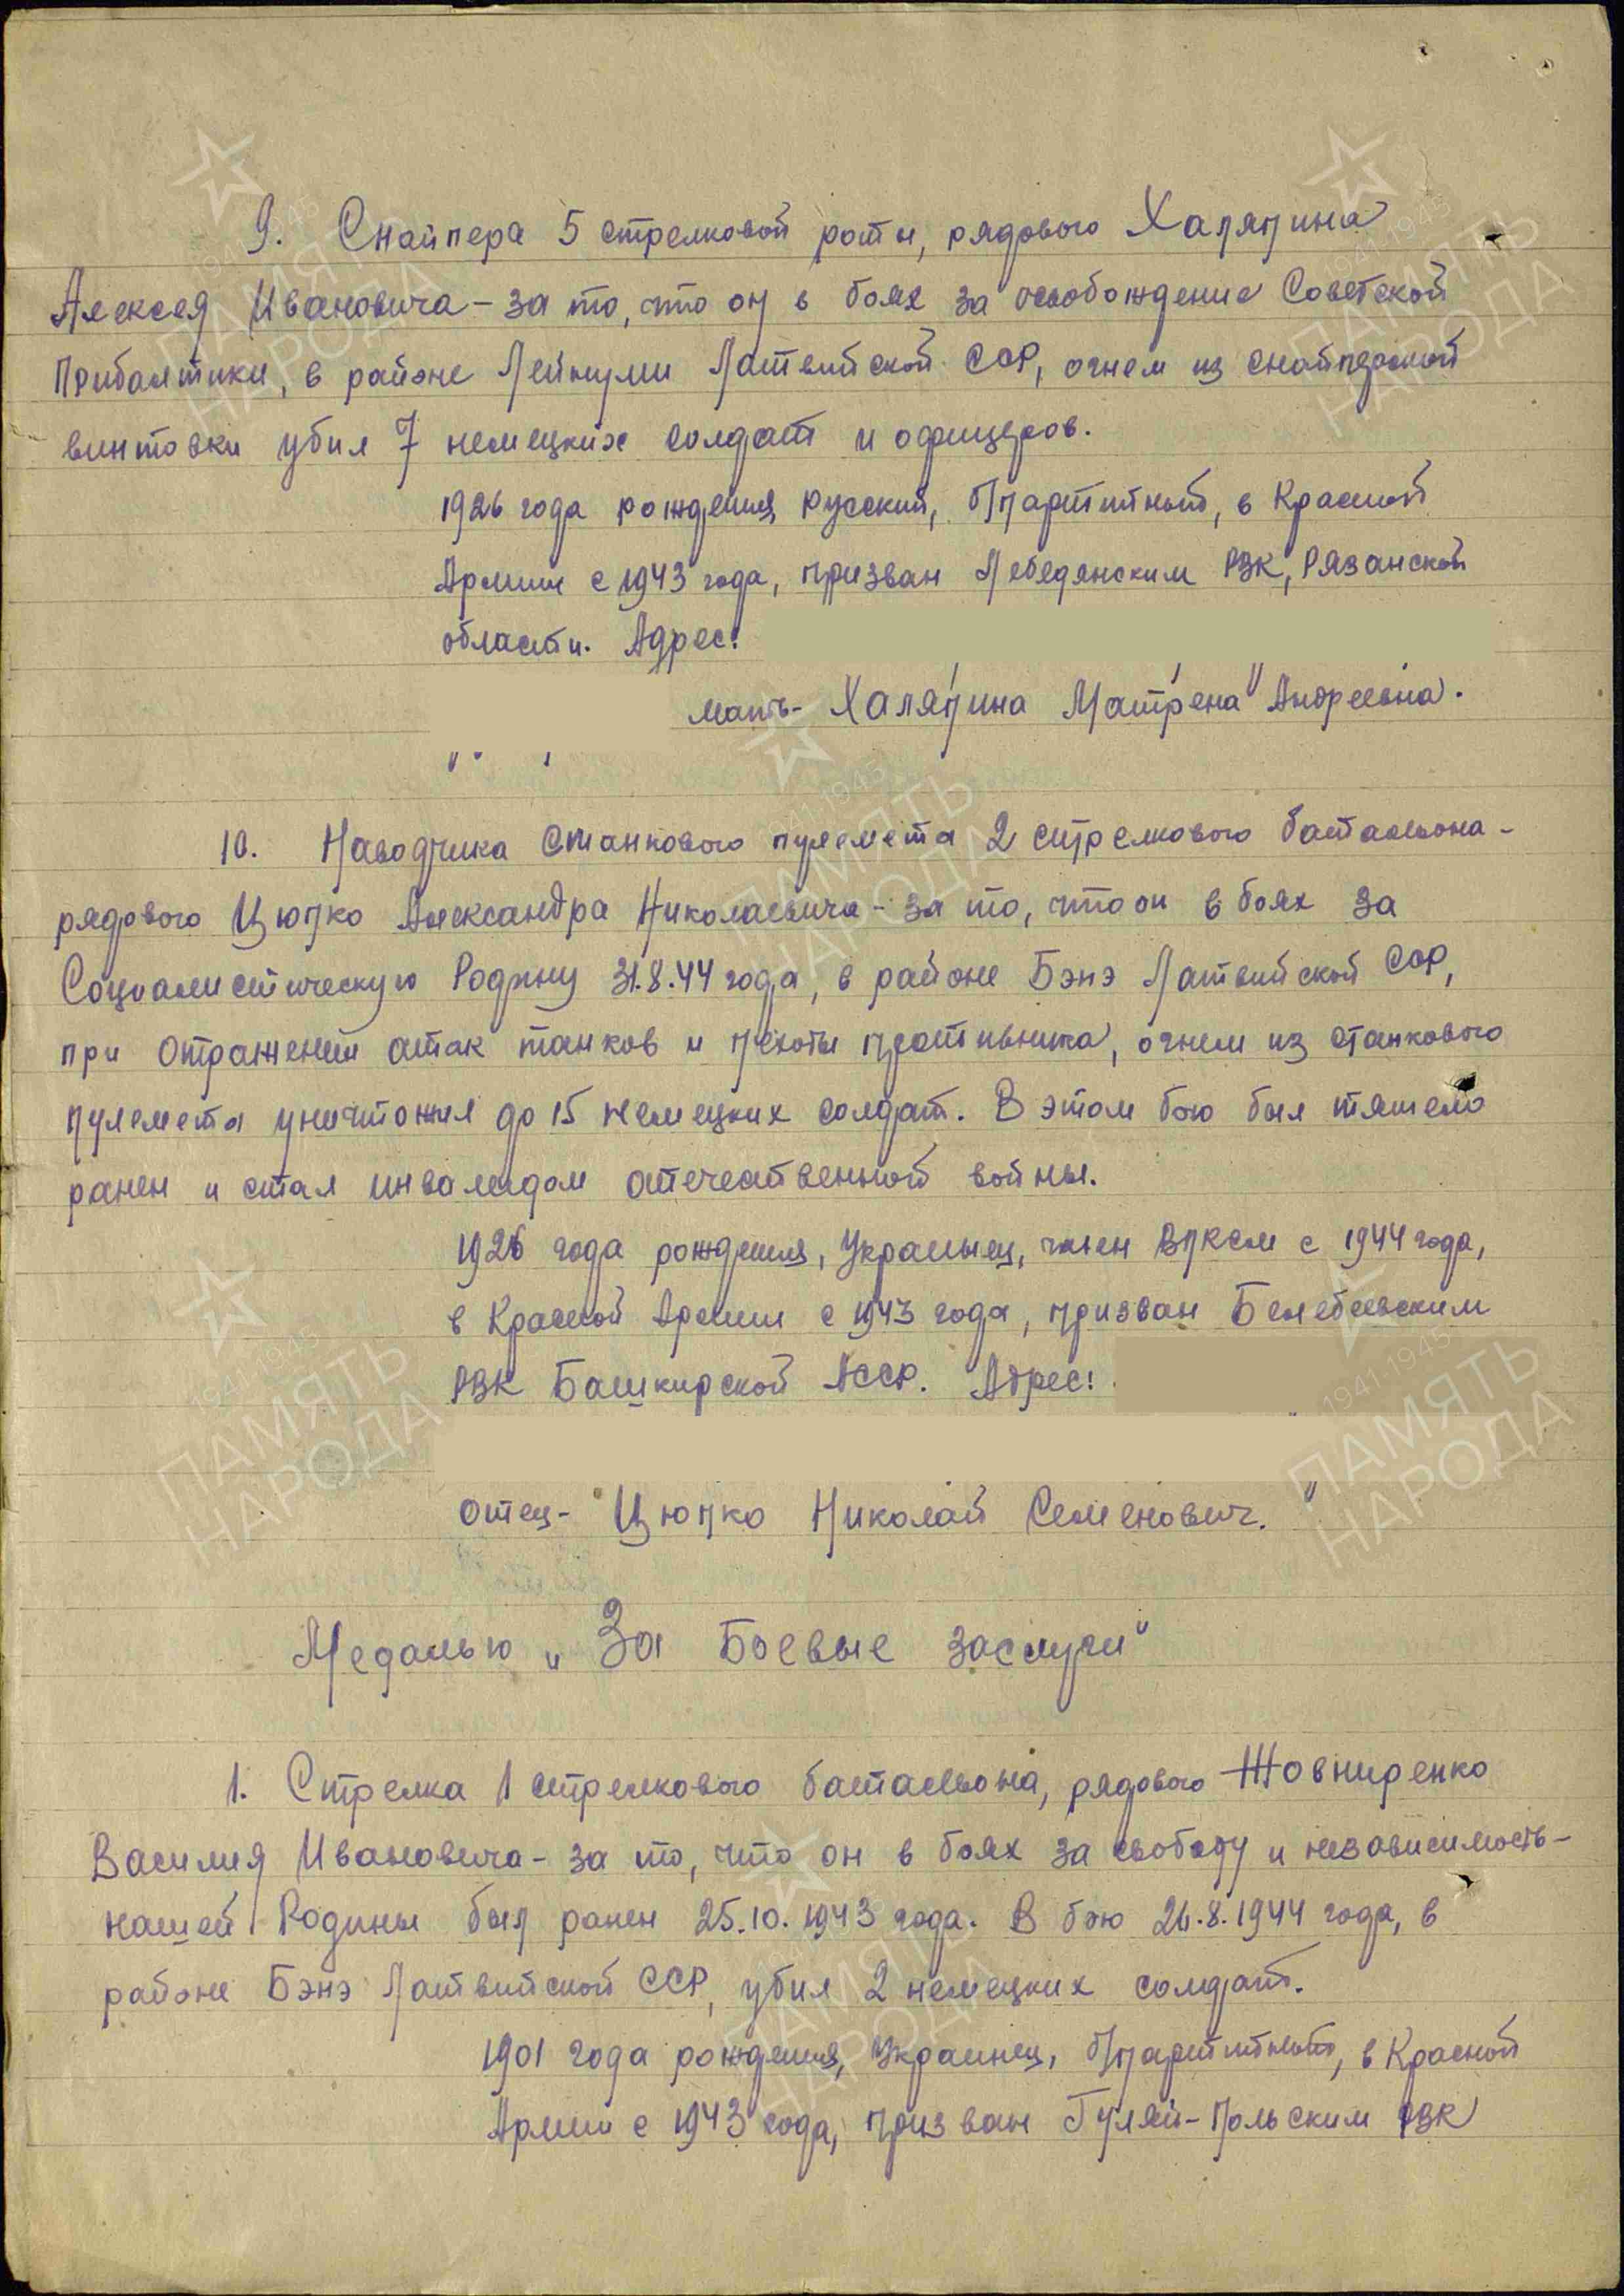 9. Снайпера 5 стрелковой роты, рядового Халяпина
Алексея Ивановича – за то, что он в боях за освобождение Советской
Прибалтики, в районе Лейкуми Латвийской ССР, огнем из снайперской
винтовки убил 7 немецких солдат и офицеров.
1926 года рождения, русский, б/партийный, в Красной
Армии с 1943 года, призван Лебедянским РВК, Рязанской
области. Адрес:
мать- Халяпина Матрена Андреевна.
10. Наводчика станкового пулемета 2 стрелкового батальона-
рядового Цюпко Александра Николаевича – за то, что он в боях за
Социалистическую Родину 31.8.44 года, в районе Бэнэ Латвийской ССР,
при отражении атак танков и пехоты противника, огнем из станкового
пулемета уничтожил до 15 немецких солдат. В этом бою был тяжело
ранен и стал инвалидом отечественной войны.
1926 года рождения, Украинец, член ВЛКСМ с 1944 года,
в Красной Армии с 1943 года, призван Белебеевским
РВК Башкирской АССР. Адрес:
отец- Цюпко Николай Семенович.
Медалью „За Боевые заслуги"
1. Стрелка 1 стрелкового батальона, рядового Жовниренко
Василия Ивановича – за то, что он в боях за свободу и независимость-
нашей Родины был ранен 25.10.1943 года. В бою 21.8.1944 года, в
районе Бэнэ Латвийской ССР, убил 2 немецких солдат.
1901 года рождения, Украинец, б/партийный, в Красной
Армии с 1943 года, призван Гуляй-Польским РВК
ПАМЯТЬ
НАРОДА
1941 1945